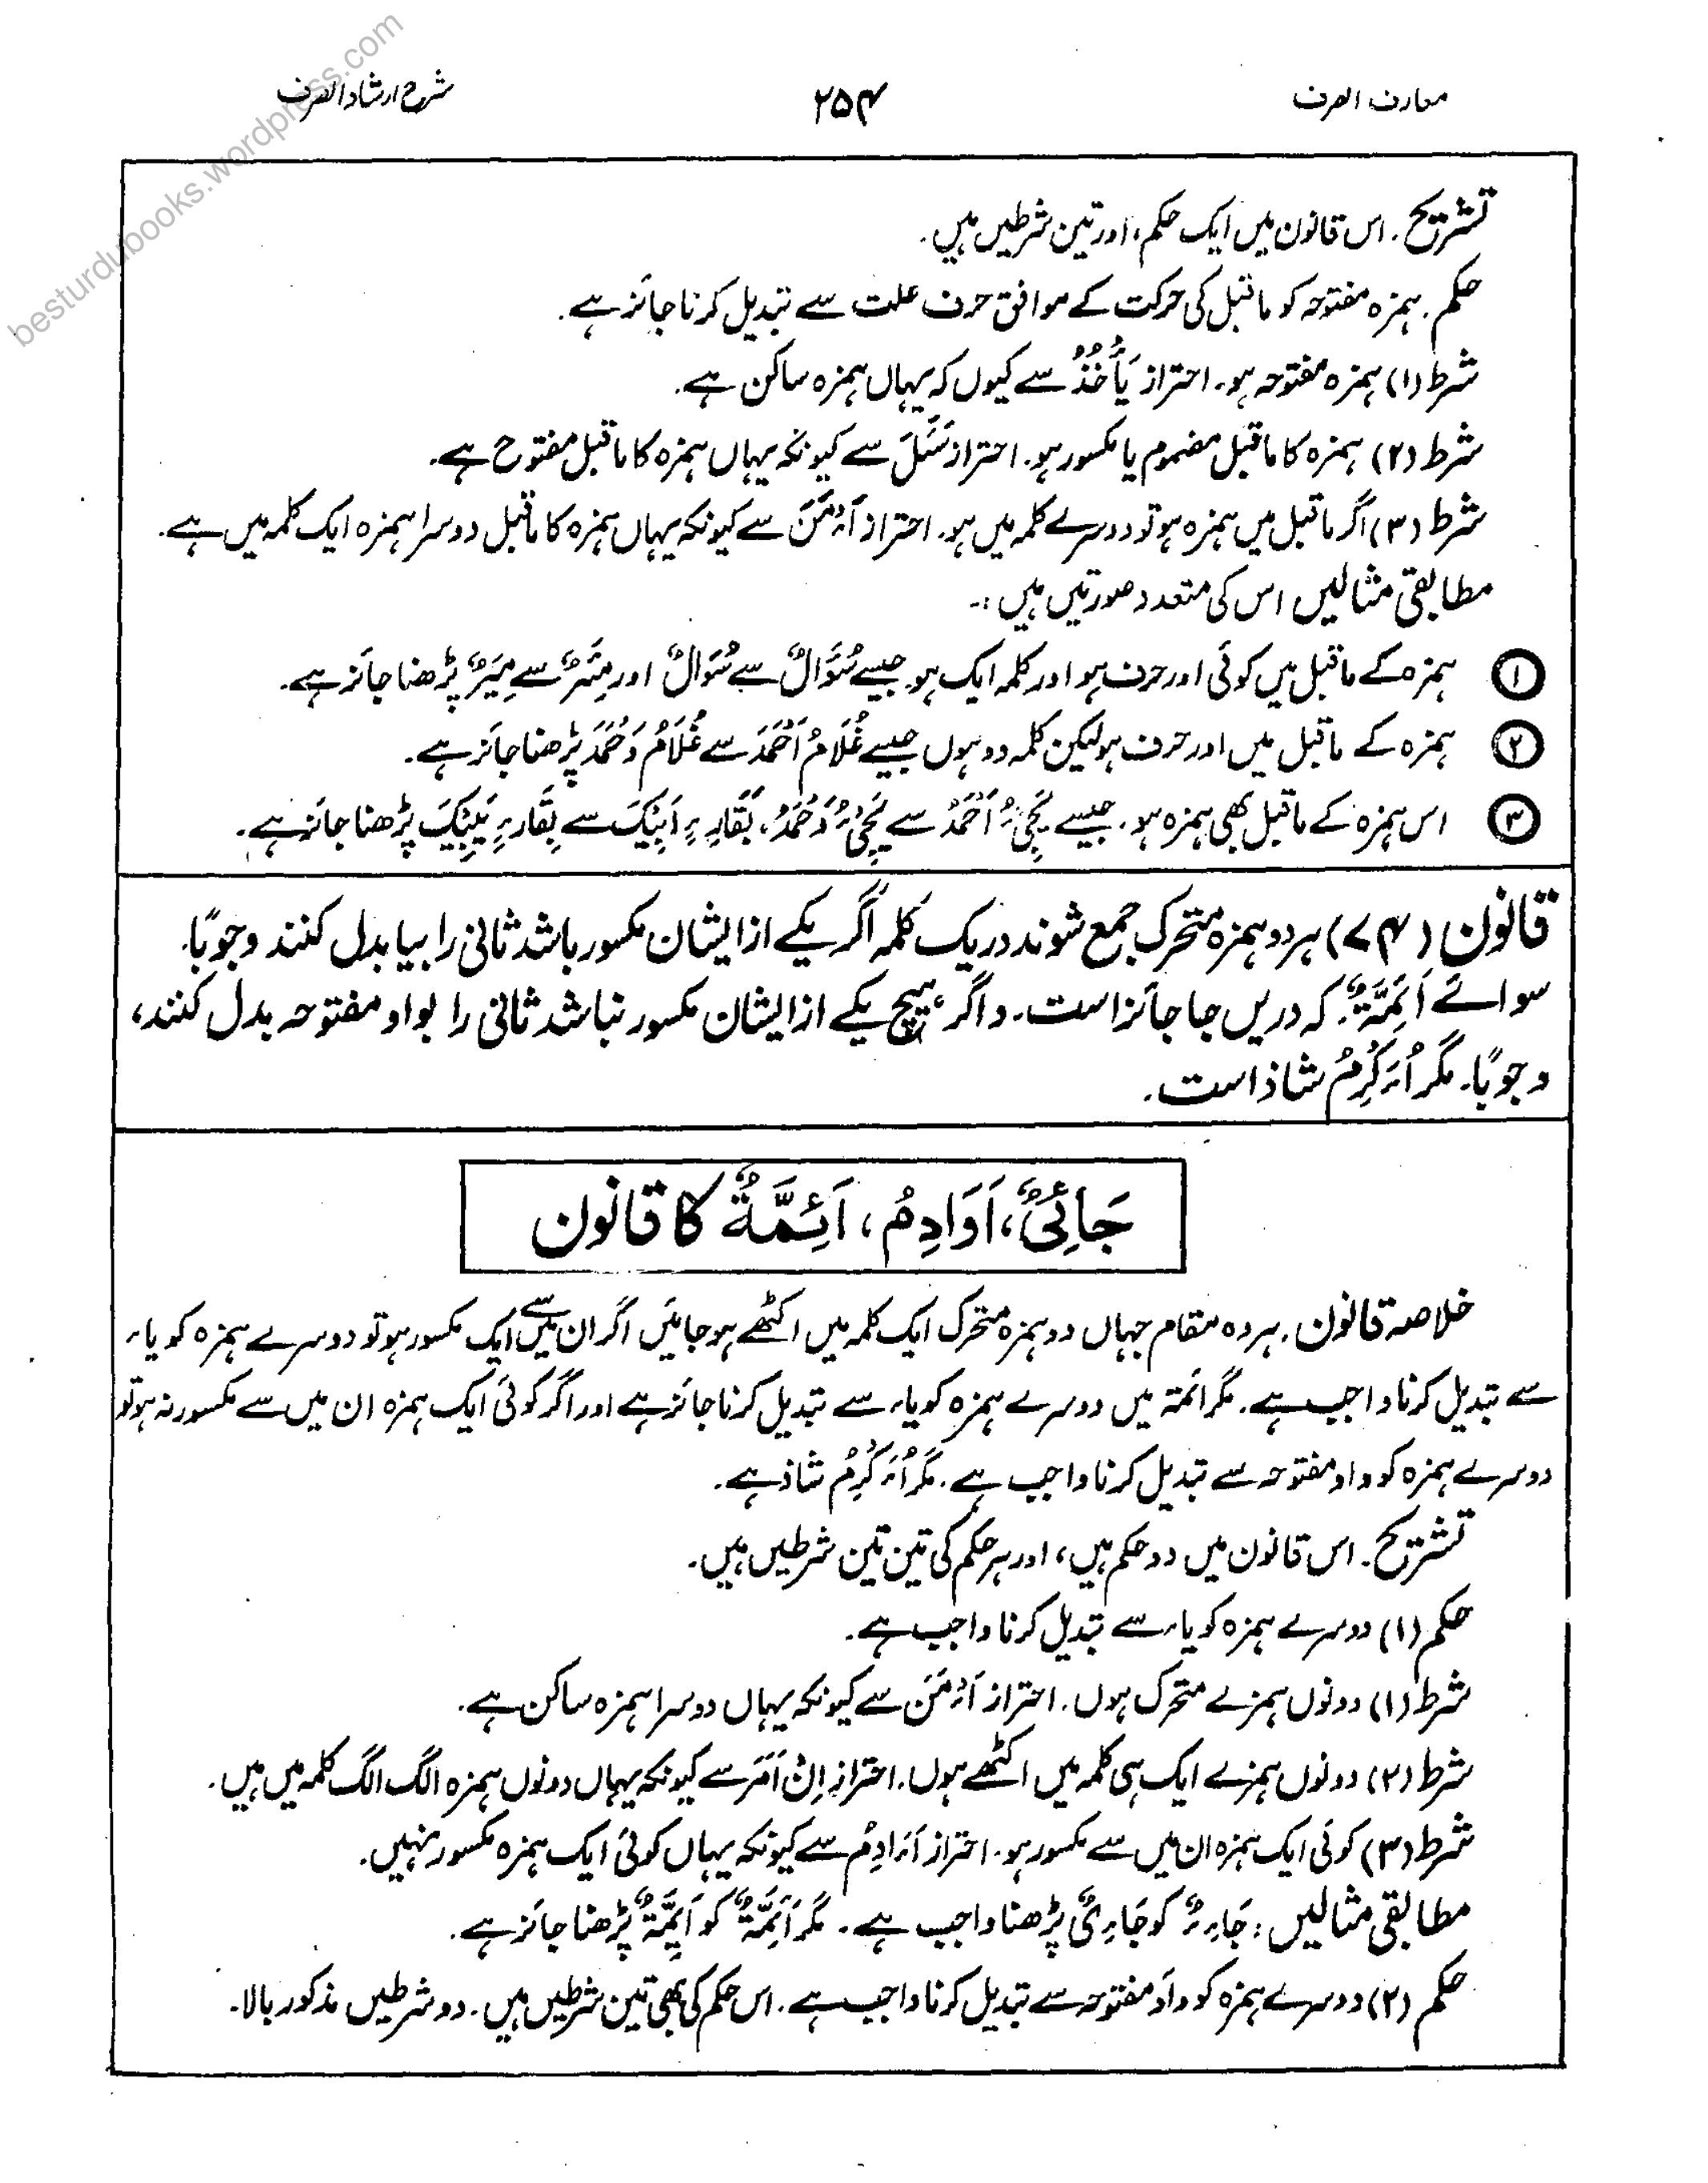 معارف الصرف
۲۵۴
شرح ارشاد الصرف
besturdubooks.wordpress.com
تشریح. اس قانون میں ایک حکم، اور تین شرطیں ہیں.
حکم. ہمزہ مفتوحہ کو ماقبل کی حرکت کے موافق حرف علت سے تبدیل کرنا جائز ہے.
شرط (۱) ہمزہ مفتوحہ ہو. احتراز یَأْخُذُ سے کیوں کہ یہاں ہمزہ ساکن ہے.
شرط (۲) ہمزہ کا ماقبل مضموم یا مکسور ہو. احتراز سَئَلَ سے کیونکہ یہاں ہمزہ کا ماقبل مفتوح ہے.
شرط (۳) اگر ماقبل میں ہمزہ ہو تو دوسرے کلمہ میں ہو. احتراز أَءْمَنَ سے کیونکہ یہاں ہمزہ کا ماقبل دوسرا ہمزہ ایک کلمہ میں ہے.
مطابقی مثالیں اس کی متعدد صورتیں ہیں :۔
① ہمزہ کے ماقبل میں کوئی اور حرف ہو اور کلمہ ایک ہو. جیسے سُؤَالٌ سے سُوَالٌ اور مِئَرٌ سے مِیَرٌ پڑھنا جائز ہے.
② ہمزہ کے ماقبل میں اور حرف ہو لیکن کلمہ دو ہوں جیسے غُلَامُ اَحْمَدَ سے غُلَامُ وَحْمَدَ پڑھنا جائز ہے.
③ اس ہمزہ کے ماقبل بھی ہمزہ ہو. جیسے یَجِیْءُ اَحْمَدُ سے یَجِیْءُ وَحْمَدُ، بِقَارِءِ اَبِیْکَ سے بِقَارِءِ یَبِیْکَ پڑھنا جائز ہے.
قانون (۷۴) ہر دو ہمزہ متحرک جمع شوند در یک کلمہ اگر یکے از ایشان مکسور باشد ثانی را بیا بدل کنند وجوبًا.
سوائے اَئِمَّةٌ. کہ دریں جا جائز است. و اگر ہیچ یکے از ایشان مکسور نباشد ثانی را بواو مفتوحہ بدل کنند،
وجوبًا. مگر اُءَکْرِمُ شاذ است.
جَائِیٌ، اَوَادِمُ، اَئِمَّةٌ کا قانون
خلاصہ قانون. ہر وہ مقام جہاں دو ہمزہ متحرک ایک کلمہ میں اکٹھے ہو جائیں اگر ان میں سے ایک مکسور ہو تو دوسرے ہمزہ کو یاء
سے تبدیل کرنا واجب ہے. مگر ائمة میں دوسرے ہمزہ کو یاء سے تبدیل کرنا جائز ہے اور اگر کوئی ایک ہمزہ ان میں سے مکسور نہ ہو تو
دوسرے ہمزہ کو واو مفتوحہ سے تبدیل کرنا واجب ہے. مگر اُءَکْرِمُ شاذ ہے.
تشریح. اس قانون میں دو حکم ہیں، اور ہر حکم کی تین تین شرطیں ہیں.
حکم (۱) دوسرے ہمزہ کو یاء سے تبدیل کرنا واجب ہے.
شرط (۱) دونوں ہمزے متحرک ہوں. احتراز اَءْمَنَ سے کیونکہ یہاں دوسرا ہمزہ ساکن ہے.
شرط (۲) دونوں ہمزے ایک ہی کلمہ میں اکٹھے ہوں. احتراز اِنْ اَمَرَ سے کیونکہ یہاں دونوں ہمزہ الگ الگ کلمہ میں ہیں.
شرط (۳) کوئی ایک ہمزہ ان میں سے مکسور ہو. احتراز اَءَادِمُ سے کیونکہ یہاں کوئی ایک ہمزہ مکسور نہیں.
مطابقی مثالیں : جَاءِءٌ کو جَاءِیٌ پڑھنا واجب ہے. مگر اَئِمَّةٌ کو اَیِمَّةٌ پڑھنا جائز ہے.
حکم (۲) دوسرے ہمزہ کو واؤ مفتوحہ سے تبدیل کرنا واجب ہے. اس حکم کی بھی تین شرطیں ہیں. دو شرطیں مذکور بالا.